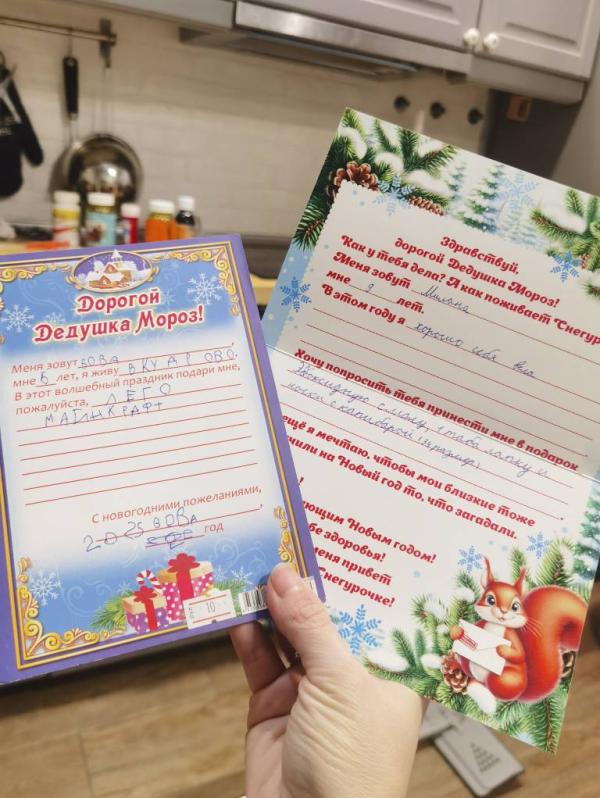 Дорогой
Дедушка Мороз!
Меня зовут ВОВА,
мне 6 лет, я живу В КУДРОВО.
В этот волшебный праздник подари мне,
пожалуйста, ЛЕГО
МАЙНКРАФТ
С новогодними пожеланиями,
ВОВА
2025 год
10
Здравствуй,
дорогой Дедушка Мороз!
Как у тебя дела? А как поживает Снегур
Меня зовут Милана
мне 9 лет.
В этом году я хорошо себя вела
Хочу попросить тебя принести мне в подарок
лапку и
носки с капибарой (34 размер)
ещё я мечтаю, чтобы мои близкие тоже
чили на Новый год то, что загадали.
!
ющим Новым годом!
бе здоровья!
меня привет
Снегурочке!